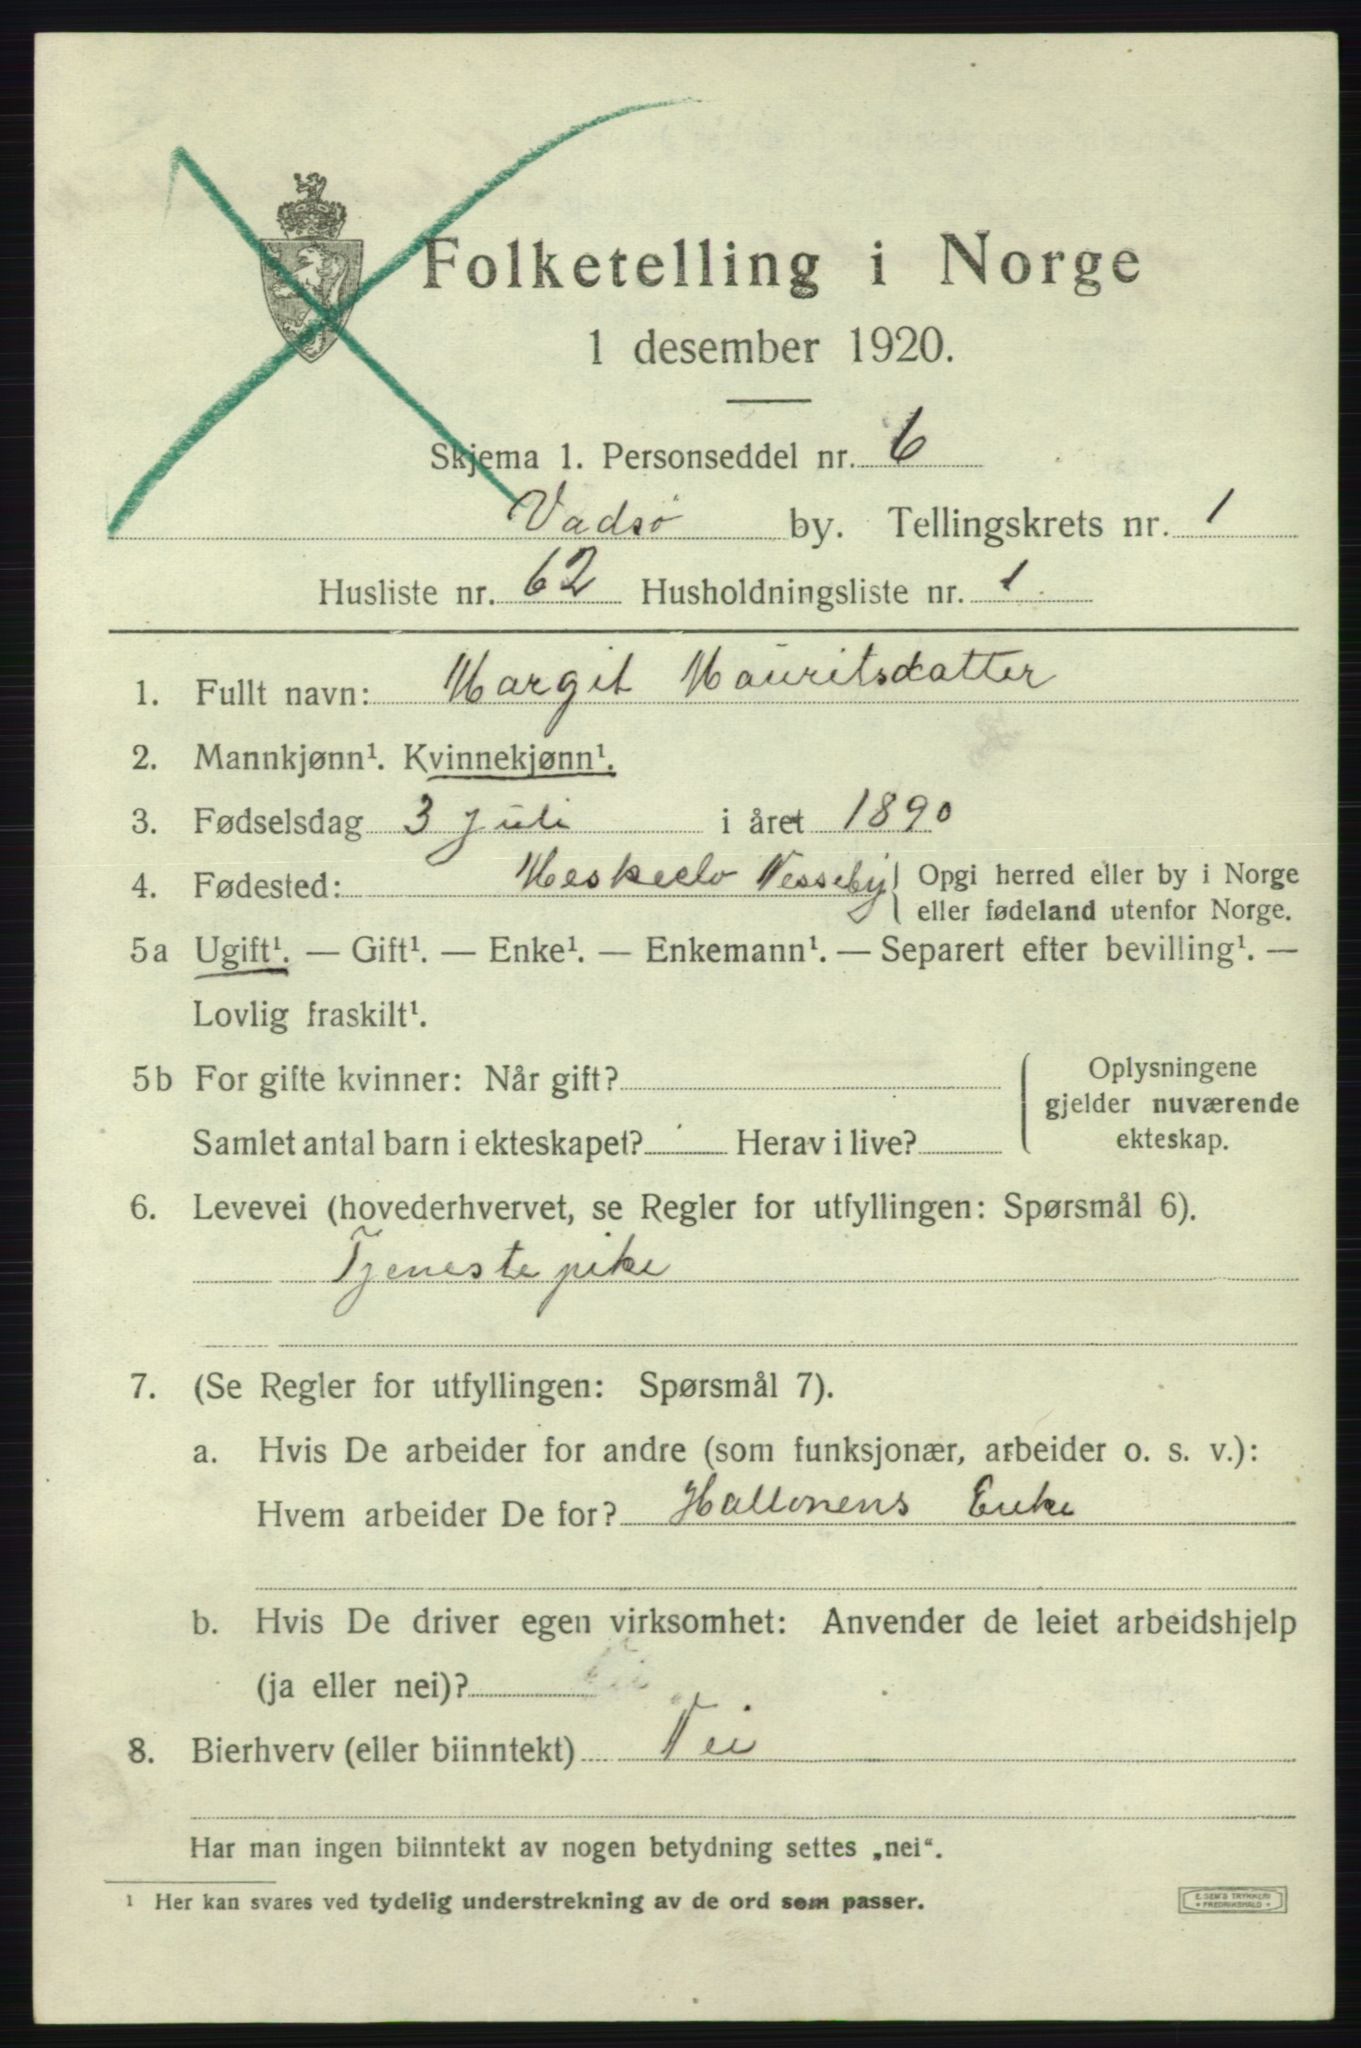 Folketelling i Norge
1 desember 1920.
Skjema 1. Personseddel nr. 6
Vadsø by. Tellingskrets nr. 1
Husliste nr. 62 Husholdningsliste nr. 1
1. Fullt navn: Margit Mauritsdatter
2. Mannkjønn¹. Kvinnekjønn¹.
3. Fødselsdag 3 juli i året 1890
4. Fødested: Meskelv Nesseby Opgi herred eller by i Norge
eller fødeland utenfor Norge.
5a Ugift¹. — Gift¹. — Enke¹. — Enkemann¹. — Separert efter bevilling¹. —
Lovlig fraskilt¹.
5b For gifte kvinner: Når gift?
Samlet antal barn i ekteskapet? Herav i live?
Oplysningene
gjelder nuværende
ekteskap.
6. Levevei (hovederhvervet, se Regler for utfyllingen: Spørsmål 6).
Tjenestepike
7. (Se Regler for utfyllingen: Spørsmål 7).
a. Hvis De arbeider for andre (som funksjonær, arbeider o. s. v.):
Hvem arbeider De for? Hallonens Enke
b. Hvis De driver egen virksomhet: Anvender de leiet arbeidshjelp
(ja eller nei)?
8. Bierhverv (eller biinntekt) Nei
Har man ingen biinntekt av nogen betydning settes „nei“.
¹ Her kan svares ved tydelig understrekning av de ord som passer.
E. SEM'S TRYKKERI
FREDRIKSHALD